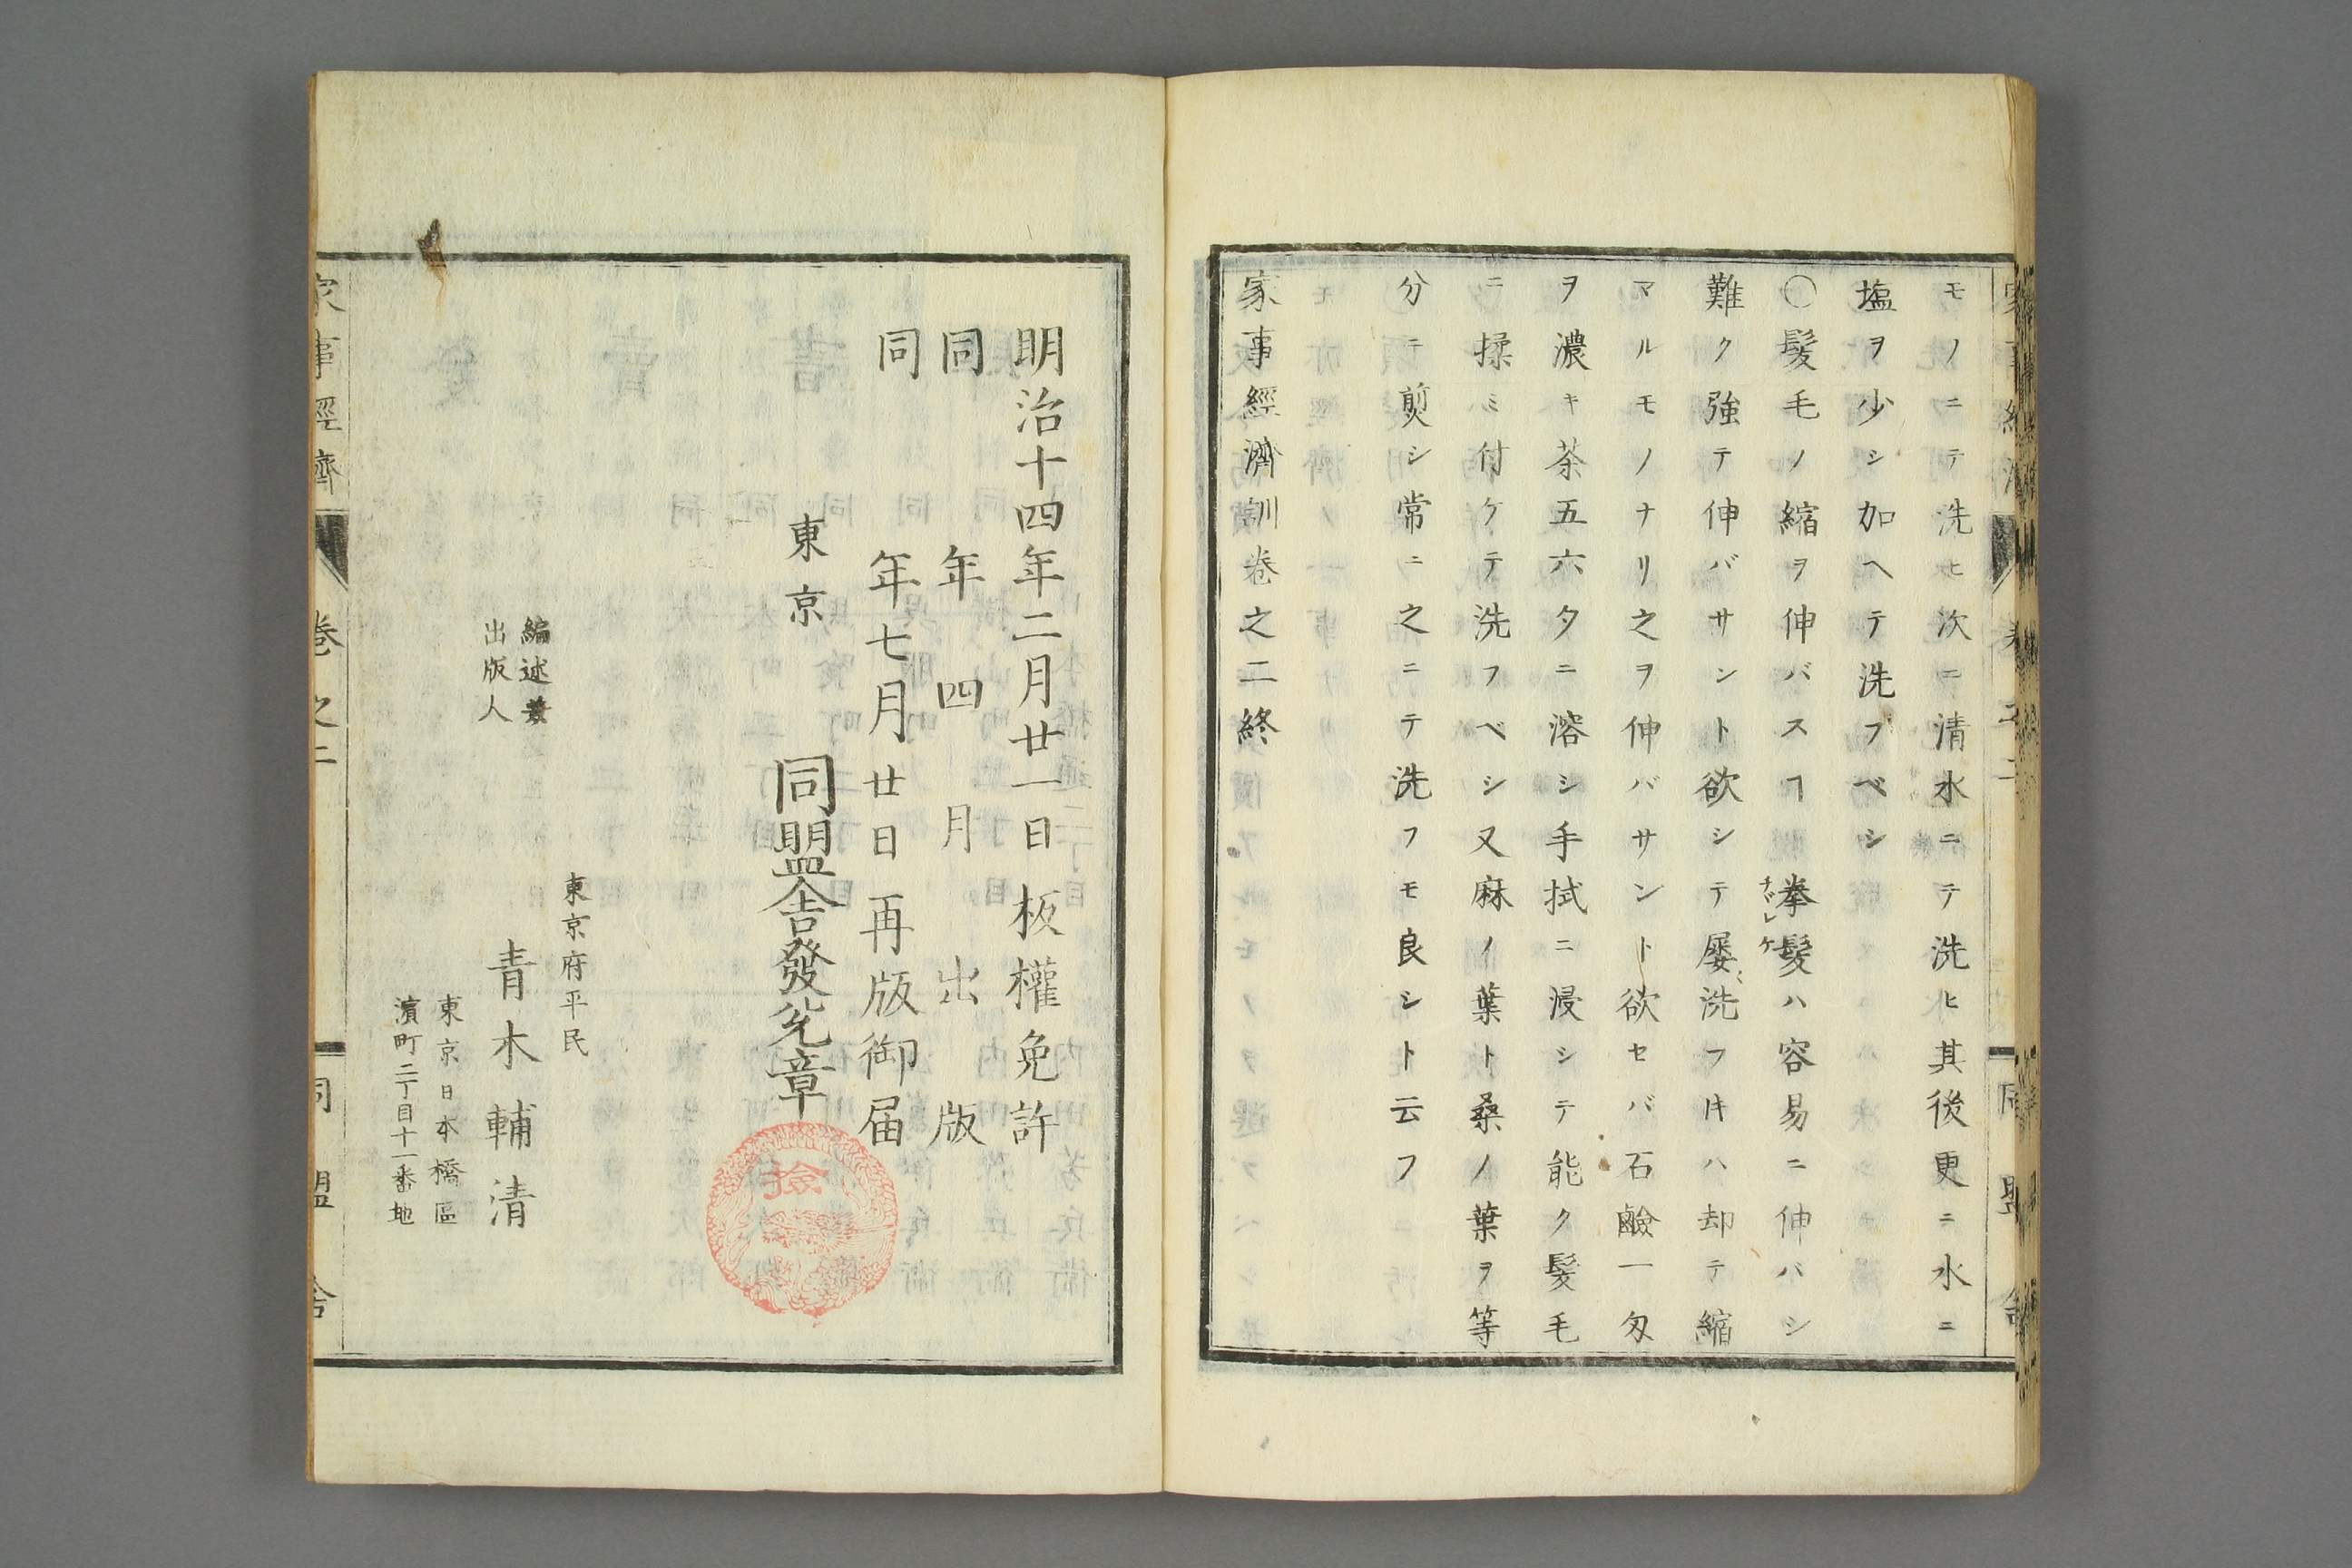 モノニテ洗ヒ次ニ清水ニテ洗ヒ其後更ニ水ニ
塩ヲ少シ加ヘテ洗フベシ
〇髪毛ノ縮ヲ伸バスヿ 拳髪ハ容易ニ伸バシ
チヾレケ
難ク強テ伸バサント欲シテ屡〻洗フ𪜈ハ却テ縮
マルモノナリ之ヲ伸バサント欲セバ石鹼一匁
ヲ濃キ茶五六夕ニ溶シ手拭ニ浸シテ能ク髪毛
ニ揉ミ付ケテ洗フベシ又麻ノ葉ト桑ノ葉ヲ等
分ニ煎シ常ニ之ニテ洗フモ良シト云フ
家事經濟訓卷之二終
明治十四年二月廿一日板權免許
同年四月出版
同年七月廿日再版御届
東京 同盟舎發兌章
檢
東京府平民
編述兼
出版人
青木輔清
東京日本橋區
濱町二丁目十一番地
家事經濟 卷之二 同盟舎